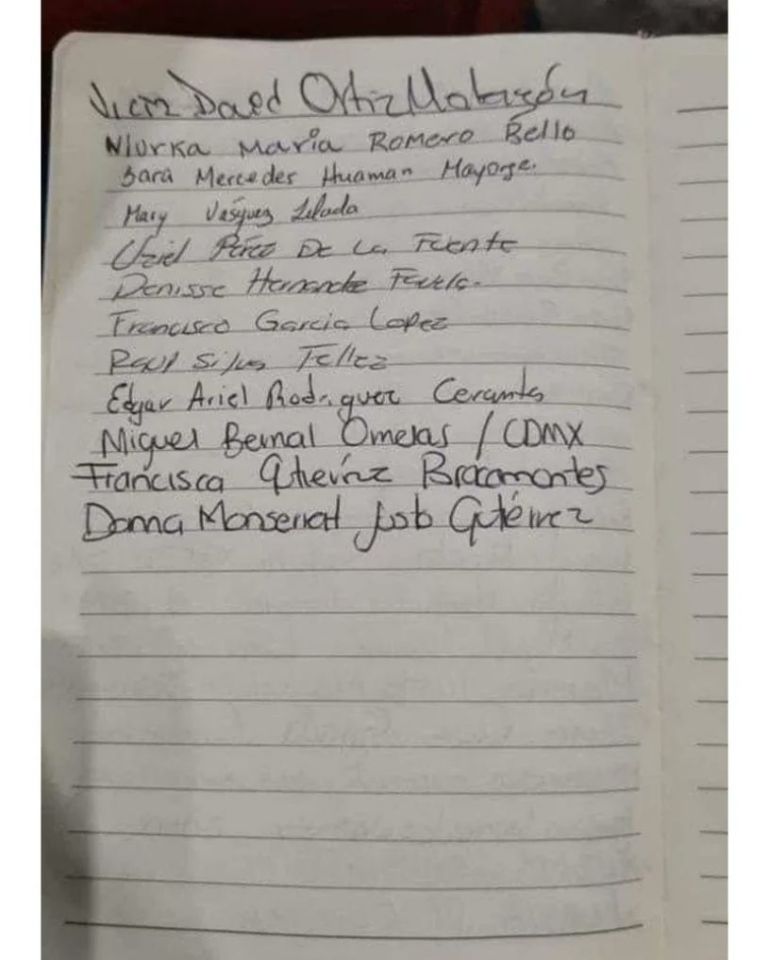 Ortiz Malagón
Niurka María Romero Bello
Sara Mercedes Huaman Mayorga.
Mary Vasquez
Uziel Pérez De La Fuente
Denisse Hernandez
Francisco Garcia Lopez
Raul Silva Tellez
Edgar Ariel Rodriguez Cerantes
Miguel Bernal Ornelas / CDMX
Francisca Gutierrez Bracamontes
Monserrat Gutiérrez